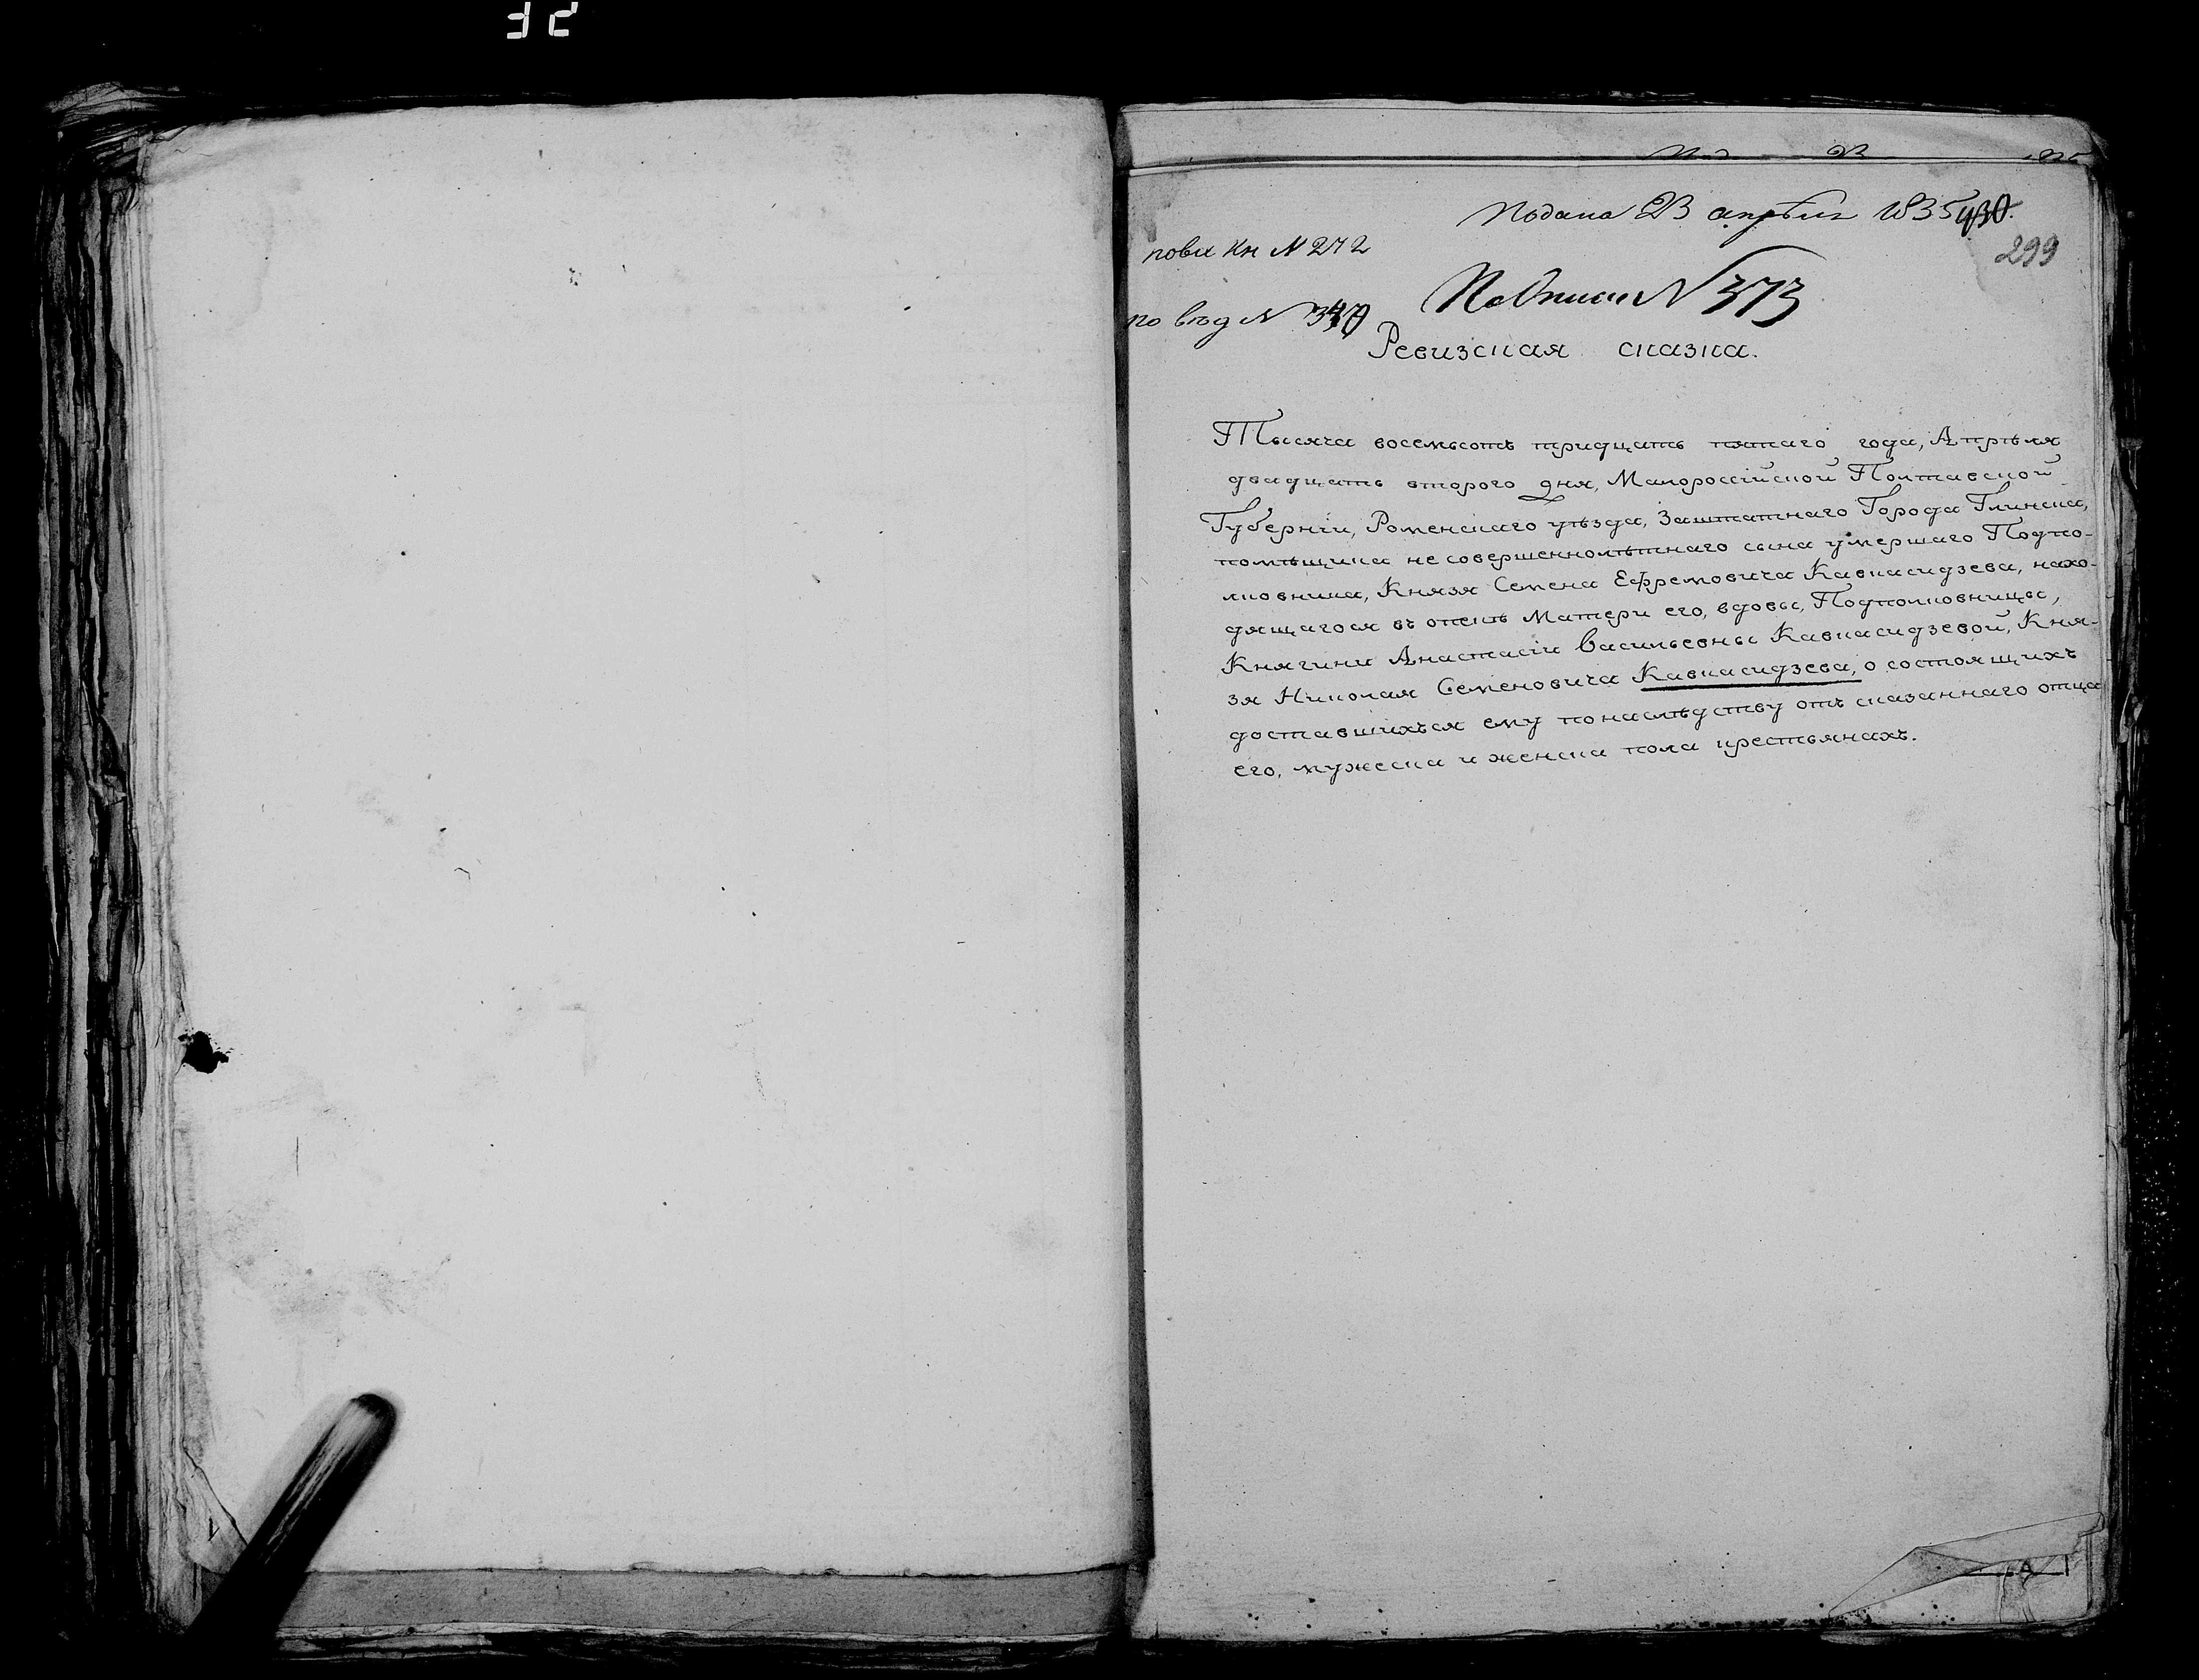 Подана 23 апрѣля 1835 430.
299
по вх Кн № 272
По Описи № 373
по вѣд № 340
Ревизская сказка.
Тысяча восемьсотъ тридцать пятаго года, Апрѣля
двадцать второго дня, Малороссійской Полтавской
Губерніи, Роменскаго уѣзда, Заштатнаго Города Глинска,
помѣщика не совершеннолѣтнаго сына умершаго Подпо-
лковника, Князя Семена Ефремовича Кавкасидзева, нахо-
дящагося въ опекѣ Матери его, вдовы, Подполковницы,
Княгини Анастасіи Васильевны Кавкасидзевой, Кня-
зя Николая Семеновича Кавкасидзева, о состоящихъ
доставшихъся ему по наслѣдству отъ сказаннаго отца
его, мужеска и женска пола крестьянахъ.